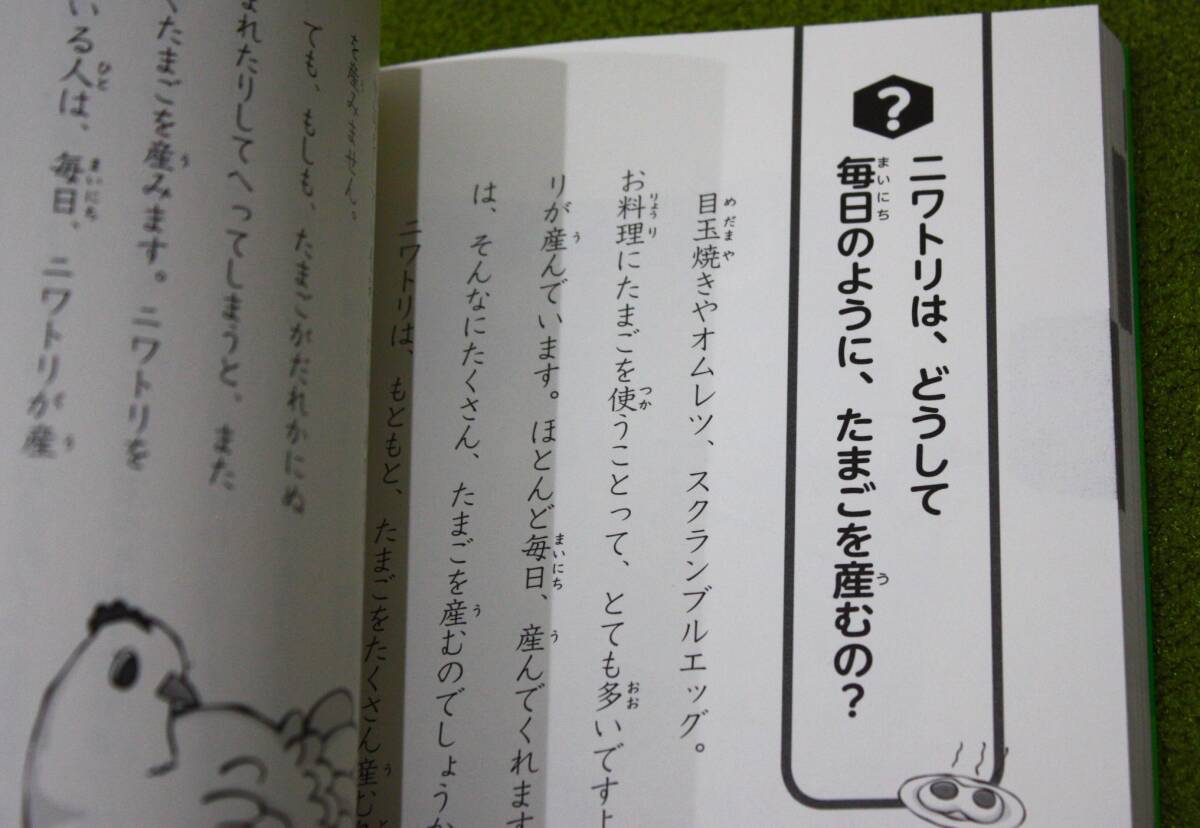 ニワトリは、どうして
毎日のように、たまごを産むの？
目玉焼きやオムレツ、スクランブルエッグ。
お料理にたまごを使うことって、とても多いですよ
リが産んでいます。ほとんど毎日、産んでくれます
は、そんなにたくさん、たまごを産むのでしょうか
ニワトリは、もともと、たまごをたくさん産む
産みません。
ても、もしも、たまごがだれかにぬ
まれたりしてへってしまうと、また
くたまごを産みます。ニワトリを
いる人は、毎日、ニワトリが産